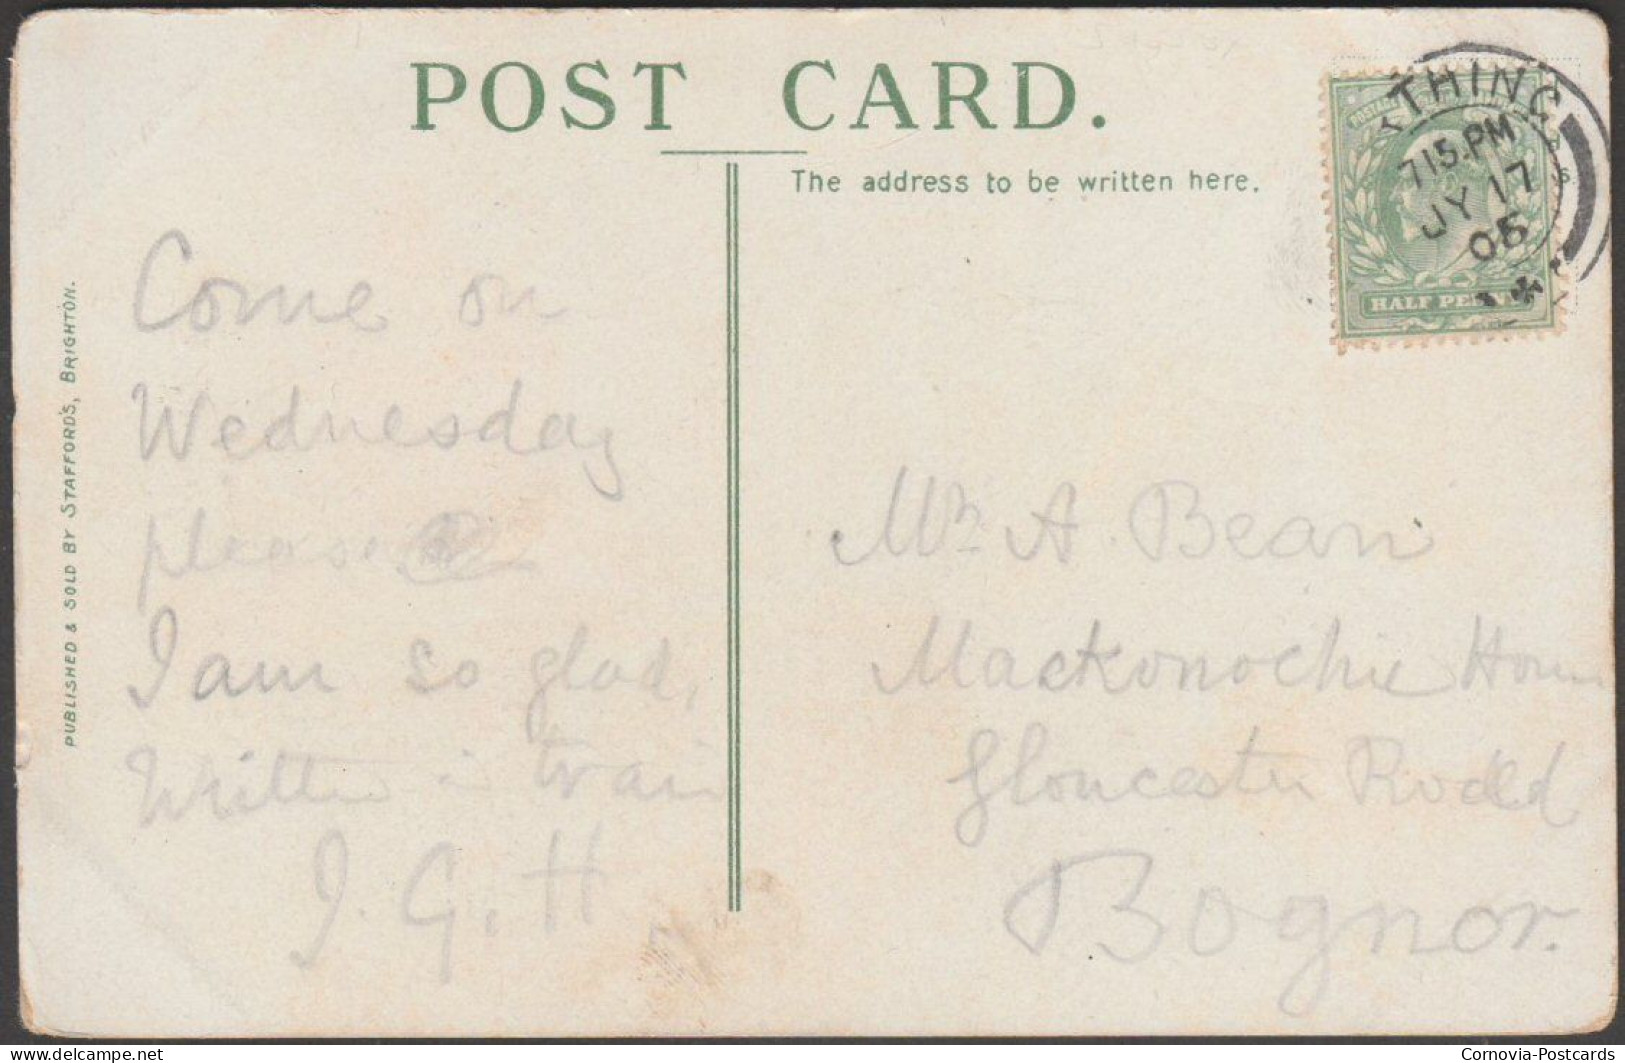 POST CARD.
The address to be written here.
PUBLISHED & SOLD BY STAFFORD'S, BRIGHTON.
THING
715.PM
JY 17
05
HALF PENNY
Come on
Wednesday
please
I am so glad,
Written in train
J. G. H
Mr. A Bean
Mackonochie House
Gloucester Road
Bognor.
Cornovia-Postcards
delcampe.net